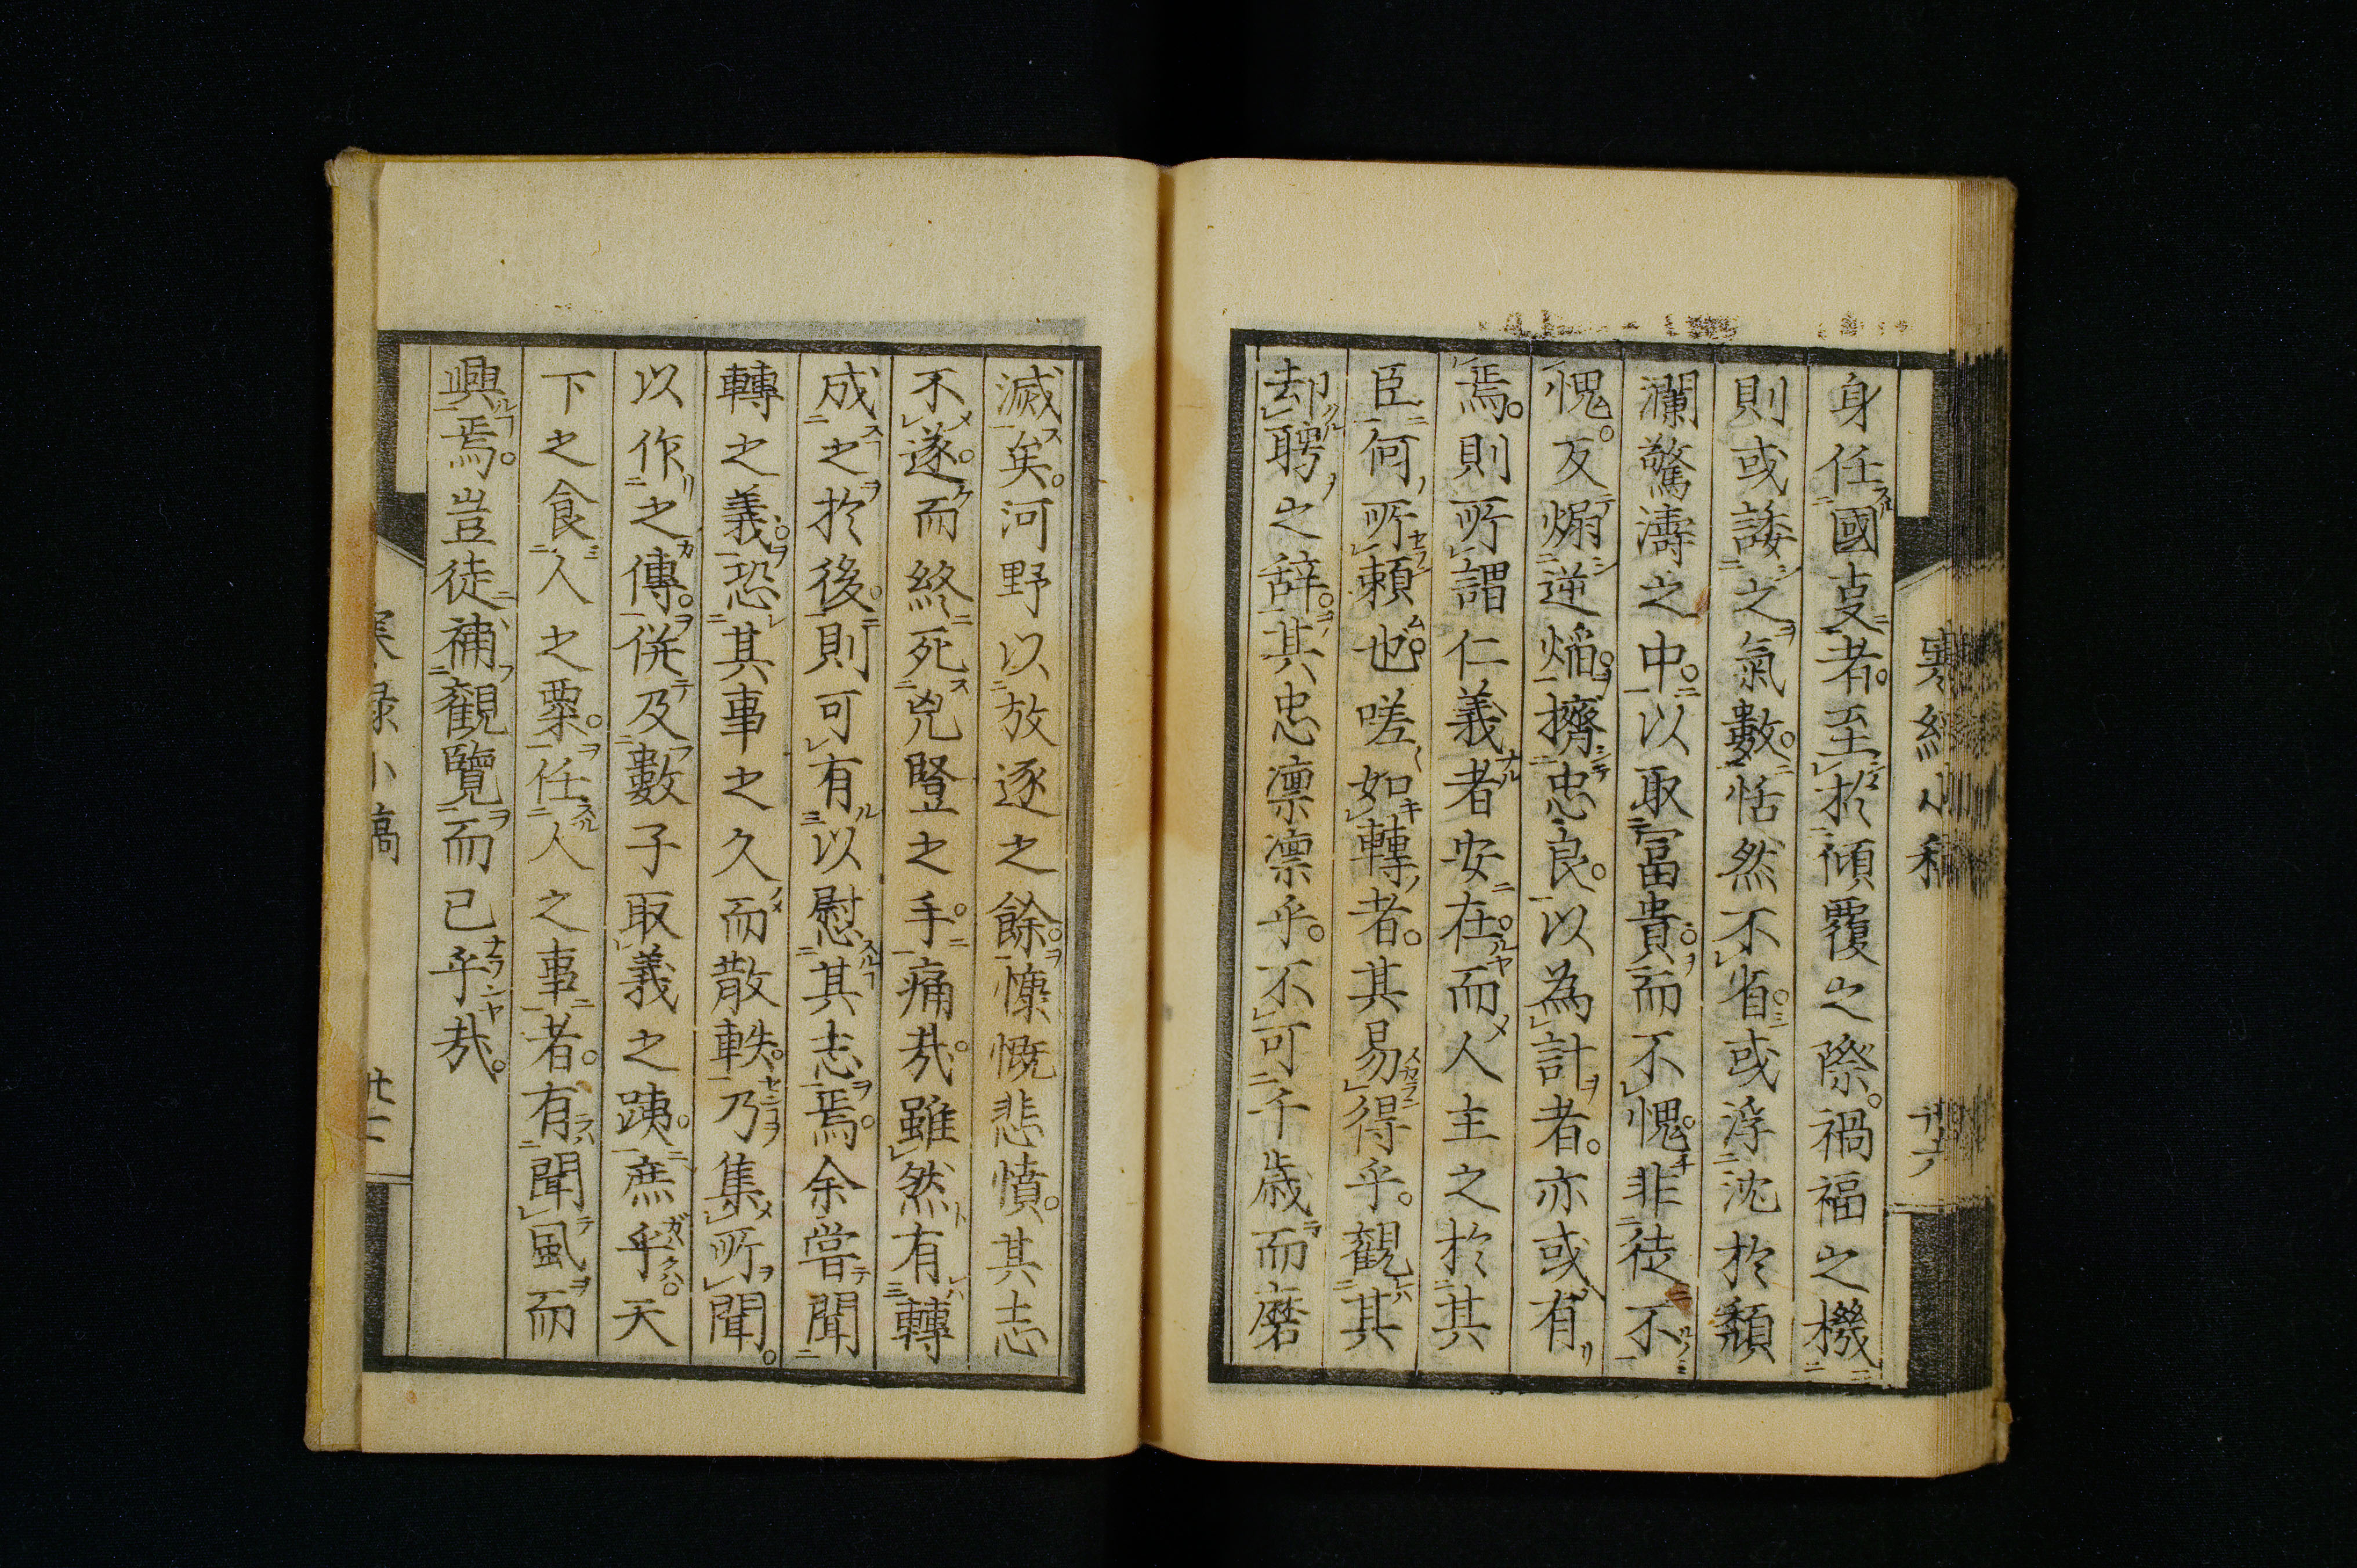 身任國㕝者。至於傾覆之際。禍福之機
則或諉之氣數。恬然不省。或浮沈於頽
瀾驚濤之中。以取富貴。而不愧。非徒不
愧。反煽逆焰。擠忠良。以為計者。亦或有
焉。則所謂仁義者安在。而人主之於其
臣何所頼也。嗟如轉者。其易得乎。觀其
却聘之辞。其忠凛凛乎。不可千歳而磨
滅矣。河野以放逐之餘。慷慨悲憤。其志
不遂。而終死兇豎之手。痛哉。雖然有轉
成之於後。則可有以慰其志焉。余嘗聞
轉之義。恐其事之久而散軼。乃集所聞。
以作之傳。併及數子取義之跡。庶乎天
下之食人之粟。任人之事者。有聞風而
興焉。豈徒補觀覽而已乎哉。
寒緑小稿